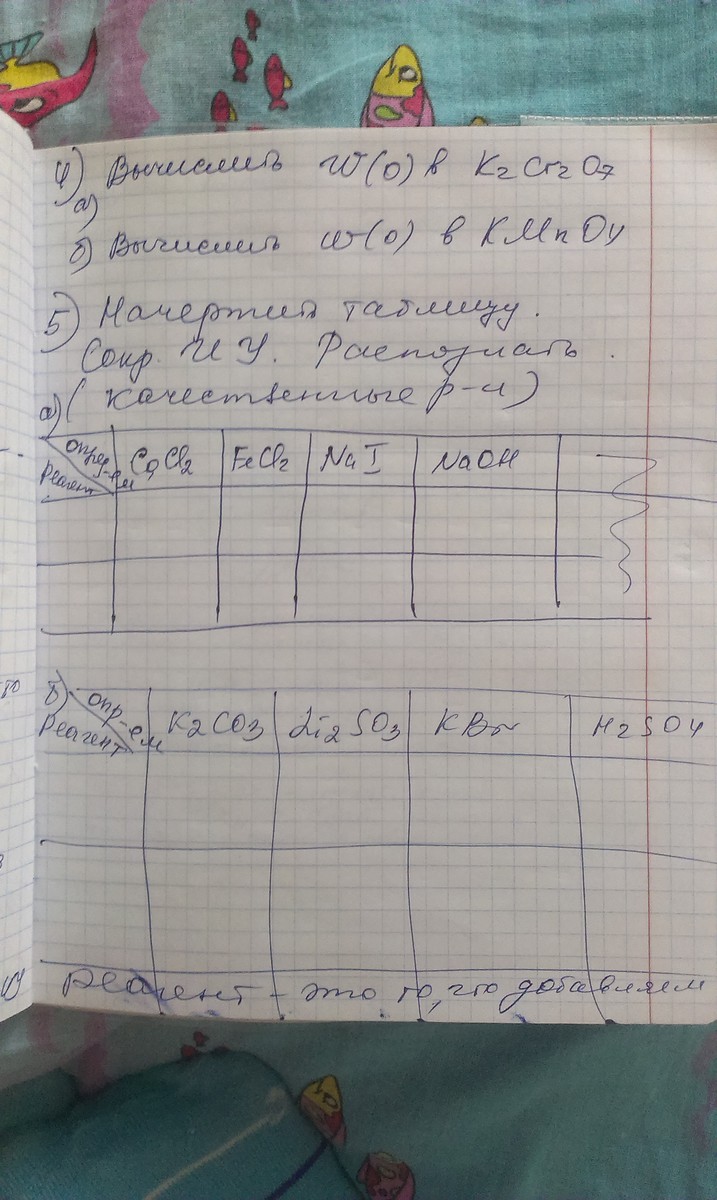 4) Вычислить W(O) в K2Cr2O7
а)
б) Вычислить w(O) в KMnO4
5) Начертить таблицу.
Сокр. И У. Распознать.
а) (качественные р-и)
Опред-ем
Реагент
CaCl2 FeCl2 NaI NaOH
б) Опр-ем
Реагент
K2CO3 Li2SO3 KBr H2SO4
Реагент - это то, что добавляем